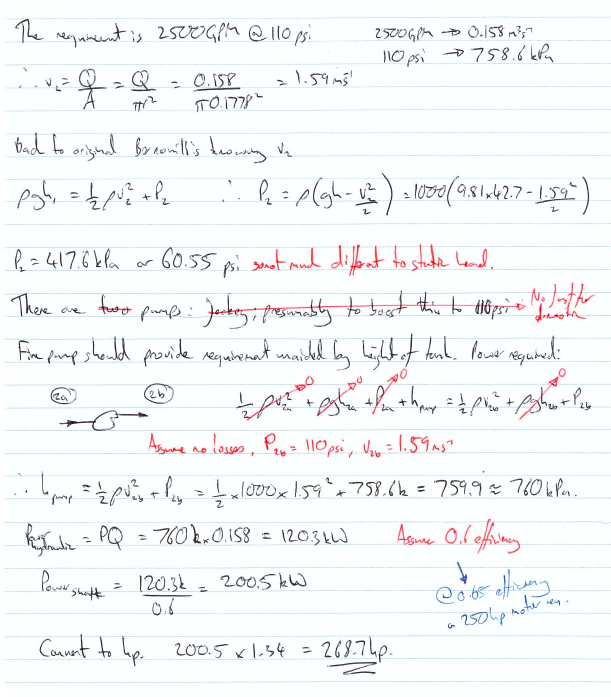 The requirement is 2500GPM @ 110 psi
2500GPM → 0.158 m³s⁻¹
110 psi → 758.6 kPa
∴ v₂ = Q/A = Q/πr² = 0.158/π0.1778² = 1.59 ms⁻¹
Back to original Bernoulli's knowing v₂
ρgh₁ = ½ρv₂² + P₂ ∴ P₂ = ρ(gh - v₂²/2) = 1000(9.81×42.7 - 1.59²/2)
P₂ = 417.6 kPa or 60.55 psi so not much different to static head.
There are two pumps: Jockey; presumably to boost this to 110psi → No just for
Fire pump should provide requirement unaided by height of tank. Power required:
2a 2b ½ρv₂ₐ² + ρgh₂ₐ + P₂ₐ + hpump = ½ρv₂b² + ρgh₂b + P₂b
0 0 0 0
Assume no losses, P₂b = 110psi, v₂b = 1.59 ms⁻¹
∴ hpump = ½ρv₂b² + P₂b = ½ × 1000 × 1.59² + 758.6k = 759.9 ≈ 760 kPa.
Power hydraulic = PQ = 760k × 0.158 = 120.3kW Assume 0.6 efficiency
Power shaft = 120.3k/0.6 = 200.5 kW
@ 0.65 efficiency
a 250hp motor req.
Convert to hp. 200.5 × 1.34 = 268.7 hp.